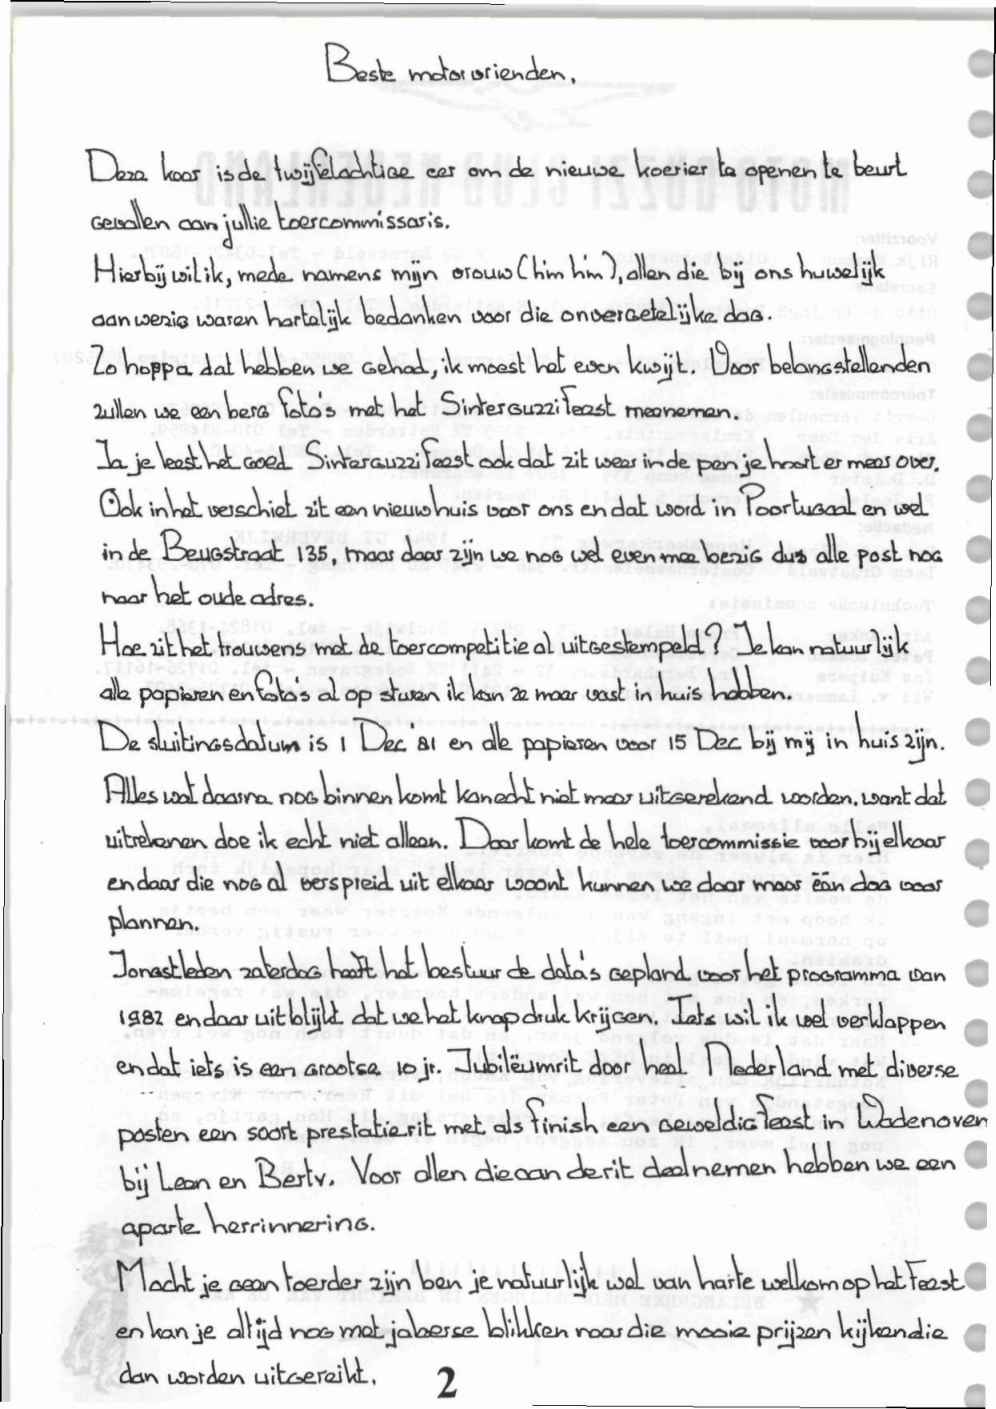 Beste motorvrienden,
Deze keer is de twijfelachtige eer om de nieuwe koerier te openen te beurt
gevallen aan jullie toercommissaris.
Hierbij wil ik, mede namens mijn vrouw (him him), allen die bij ons huwelijk
aanwezig waren hartelijk bedanken voor die onvergetelijke dag.
Zo hoppa dat hebben we gehad, ik moest het even kwijt. Voor belangstellenden
zullen we een berg foto's met het Sinterguzzifeest meenemen.
Ja je leest het goed Sinterguzzifeest ook dat zit weer in de pen je hoort er meer over.
Ook in het verschiet zit een nieuw huis voor ons en dat word in Poortugaal en wel
in de Beugstraat 135, maar daar zijn we nog wel even mee bezig dus alle post nog
naar het oude adres.
Hoe zit het trouwens met de toercompetitie al uitgestempeld? Je kan natuurlijk
alle papieren en foto's al op sturen ik kan ze maar vast in huis hebben.
De sluitingsdatum is 1 Dec '81 en alle papieren voor 15 Dec bij mij in huis zijn.
Alles wat daarna nog binnen komt kan echt niet meer uitgerekend worden, want dat
uitrekenen doe ik echt niet alleen. Daar komt de hele toercommissie voor bij elkaar
en daar die nog al verspreid uit elkaar woont kunnen we daar maar één dag voor
plannen.
Jongstleden zaterdag heeft het bestuur de data's gepland voor het programma van
1982 en daar uit blijkt dat we het knap druk krijgen. Iets wil ik wel verklappen
en dat iets is een grootse 10 jr. Jubilëumrit door heel Nederland met diverse
posten een soort prestatierit met als finish een geweldig feest in Wadenoyen
bij Leon en Berty. Voor allen die aan de rit deelnemen hebben we een
aparte herrinnering.
Mocht je geen toerder zijn ben je natuurlijk wel van harte welkom op het feest
en kan je altijd nog met jaloerse blikken naar die mooie prijzen kijken die
dan worden uitgereikt.
2